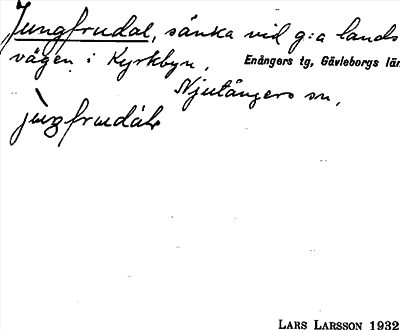 Jungfrudal, sänka vid g:a lands
vägen i Kyrkbyn,
Enångers tg, Gävleborgs län
Njutångers sn,
jùŋfrudál
LARS LARSSON 1932